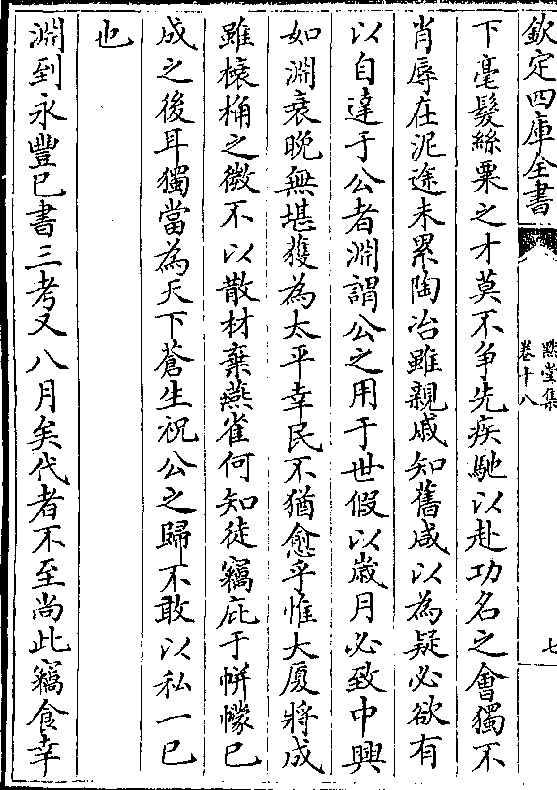 欽定四庫全書
默堂集
卷十八
七
下毫髮絲粟之才莫不爭先疾馳以赴功名之會獨不
肖辱在泥途未累陶冶雖親戚知舊咸以為疑必欲有
以自達于公者淵謂公之用于世假以歲月必致中興
如淵衰晚無堪獲為太平幸民不猶愈乎惟大厦將成
雖榱桷之微不以散材棄燕雀何知徒竊庇于帡幪已
成之後耳獨當為天下蒼生祝公之歸不敢以私一已
也
淵到永豐已書三考又八月矣代者不至尚此竊食幸